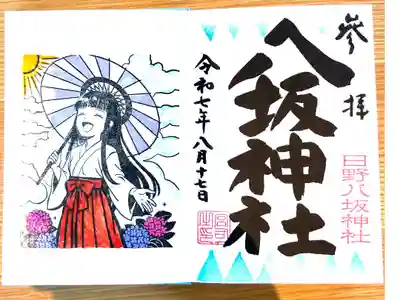 参拝
八坂神社
日野八坂神社
令和七年八月十七日